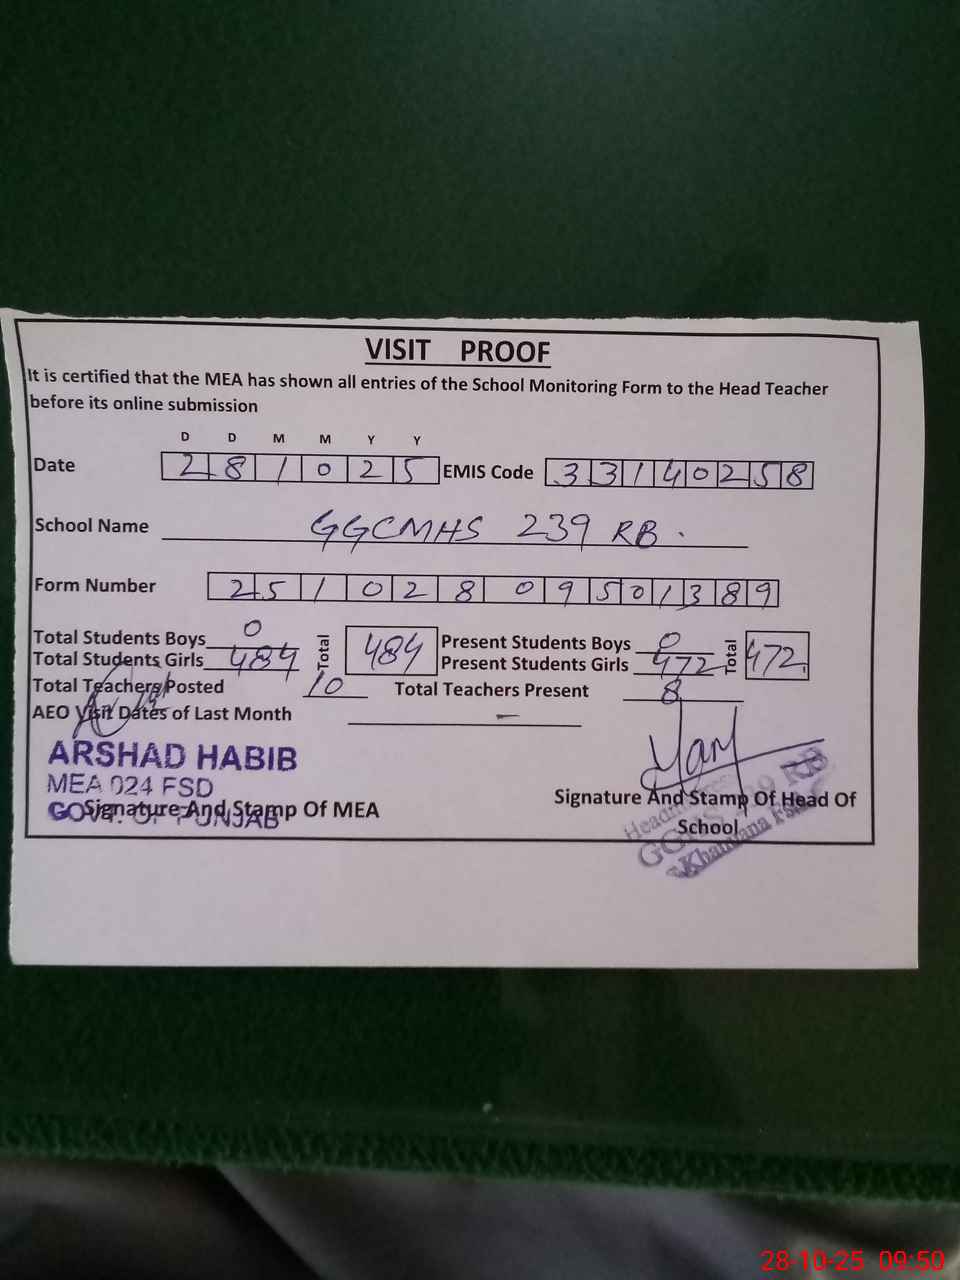 VISIT PROOF
It is certified that the MEA has shown all entries of the School Monitoring Form to the Head Teacher
before its online submission
D D M M Y Y
Date 2 8 1 0 2 5 EMIS Code 3 3 1 4 0 2 5 8
School Name GGCMHS 239 RB.
Form Number 2 5 1 0 2 8 0 9 5 0 1 3 8 9
Total Students Boys 0 Total 484 Present Students Boys 0 Total 472
Total Students Girls 484 Present Students Girls 472
Total Teachers Posted 10 Total Teachers Present 8
AEO Visit Dates of Last Month -
ARSHAD HABIB
MEA 024 FSD
GOVT. OF PUNJAB
Signature And Stamp Of MEA
Signature And Stamp Of Head Of
School
RB
28-10-25 09:50